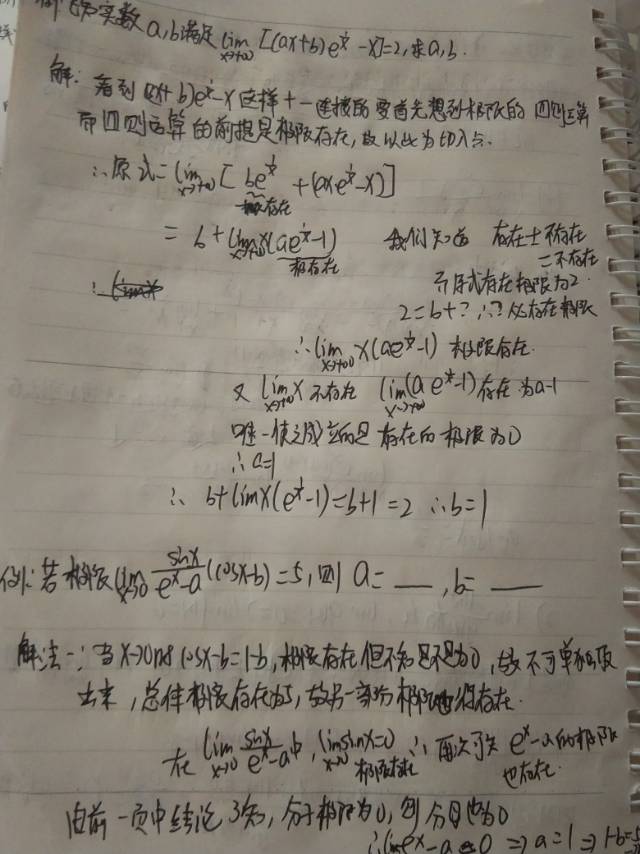 例 已知实数a,b满足lim x→+∞ [(ax+b)e^{1/x}-x]=2,求a,b.
解: 看到(ax+b)e^{1/x}-x这样+-连接的要首先想到极限的四则运算
而四则运算的前提是极限存在,故以此为切入点.
∴原式=lim x→+∞ [be^{1/x}+(axe^{1/x}-x)]
存在
=b+lim x→+∞ x(ae^{1/x}-1) 我们知道 存在±不存在
极存在 =不存在
存在极限为2.
2=b+? ∴?必存在极限
∴lim x→+∞ x(ae^{1/x}-1) 极限存在.
又 lim x→+∞ x不存在 lim x→+∞ (ae^{1/x}-1)存在为a-1
唯一使之成立的是存在的极限为0
∴a=1
∴ b+limx(e^{1/x}-1)=b+1=2 ∴b=1
例:若极限lim x→0 sinx/(e^x-a) (cosx-b)=5,则 a=__,b=__
解法一:当x→0时cosx-b=1-b,极限存在但不知是不是为0,故不可单独取
出来,总体极限存在为5,故另一部分极限也得存在.
在 lim x→0 sinx/(e^x-a)中,lim x→0 sinx=0 ∴再次可知 e^x-a的极限
极限存在 也存在.
由前一页中结论3知,分子极限为0,则分母也为0
∴lim e^x-a=0 ⇒a=1⇒1-b=5